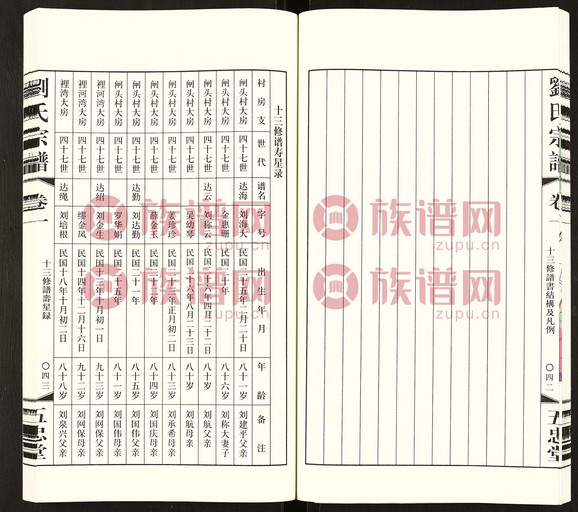 劉氏宗譜
卷一
十三修譜書結構及凡例
〇四二
五忠堂
十三修谱寿星录
村房支 世代 谱名 字号 出生年月 年龄 备注
闸头村大房 四十七世 达海 刘海大 民国二十五年二月二十日 八十一岁 刘建平父亲
闸头村大房 四十七世 金惠珊 八十六岁 刘称大妻子
闸头村大房 四十七世 达云 刘称云 八十岁 刘航父亲
闸头村大房 四十七世 吴幼琴 八十岁 刘航母亲
闸头村大房 四十七世 姜珍珍 八十三岁 刘承希母亲
闸头村大房 四十七世 薛金玉 八十四岁 刘国庆母亲
闸头村大房 四十七世 达勤 刘达勤 八十五岁 刘国伟父亲
闸头村大房 四十七世 罗华娟 八十一岁 刘国伟母亲
裡河湾大房 四十七世 达绍 刘金生 九十三岁 刘网保父亲
裡河湾大房 四十七世 缪金凤 民国十四年十二月十六日 九十二岁 刘网保母亲
裡湾大房 四十七世 达绳 刘培根 民国十八年十月初二日 八十八岁 刘泉兴父亲
劉氏宗譜
卷一
十三修譜壽星録
〇四三
五忠堂
族谱网
zupu.cn
族谱网
zupu.cn
族谱网
zupu.cn
族谱网
zupu.cn